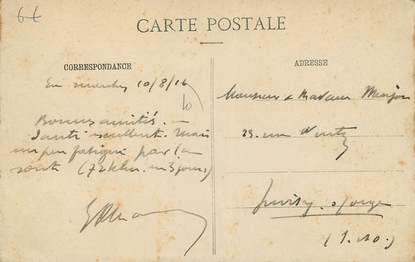 6 €
CARTE POSTALE
CORRESPONDANCE
ADRESSE
En marche, 10/8/16
Bonnes amitiés. —
Santé excellente. Mais
un peu fatigué par la
route (72 klm. en 3 jours)
Monsieur & Madame
25. rue
Juvisy s/ orge
(S. & O.)